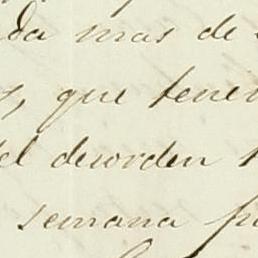 da mas de
que tener
del desorden
semana